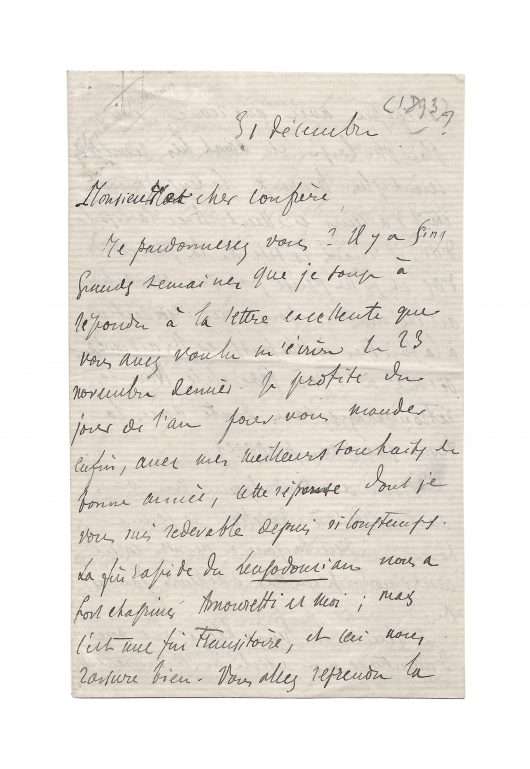 (1893?)
31 décembre
Monsieur et cher confrère,
Me pardonnerez vous ? Il y a cinq
grandes semaines que je songe à
répondre à la lettre excellente que
vous avez voulu m'écrire le 23
novembre dernier. Je profite du
jour de l'an pour vous mander
enfin, avec mes meilleurs souhaits de
bonne année, cette réponse dont je
vous suis redevable depuis si longtemps.
La fin rapide du nous a
fort chagrinés Amouretti et moi ; mais
c'est une fin transitoire, et ceci nous
rassure bien. Vous allez reprendre la